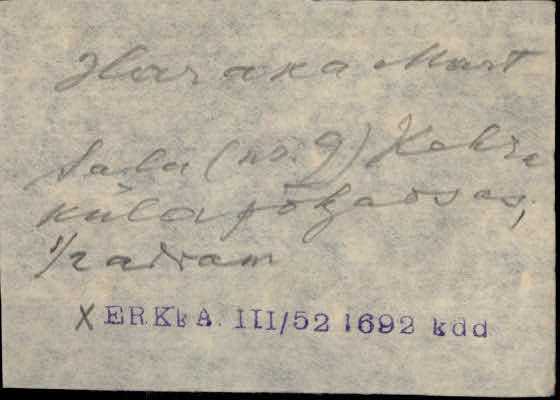 Haraka Mart
Salu (nr. 9) Kehra
küla põhjaosas,
1/2 adram
X ERKkA. III/52 1692 kdd